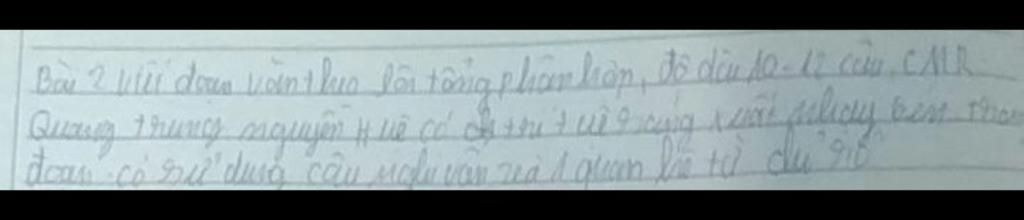 Bài 2 viết đoạn văn theo lối tổng phân hợp, độ dài 10-12 câu, CMR
Quang trung nguyễn Huệ có trí tuệ sáng suốt nhạy bén trong
đoạn có sử dụng câu nghi vấn và 1 quan hệ từ chỉ